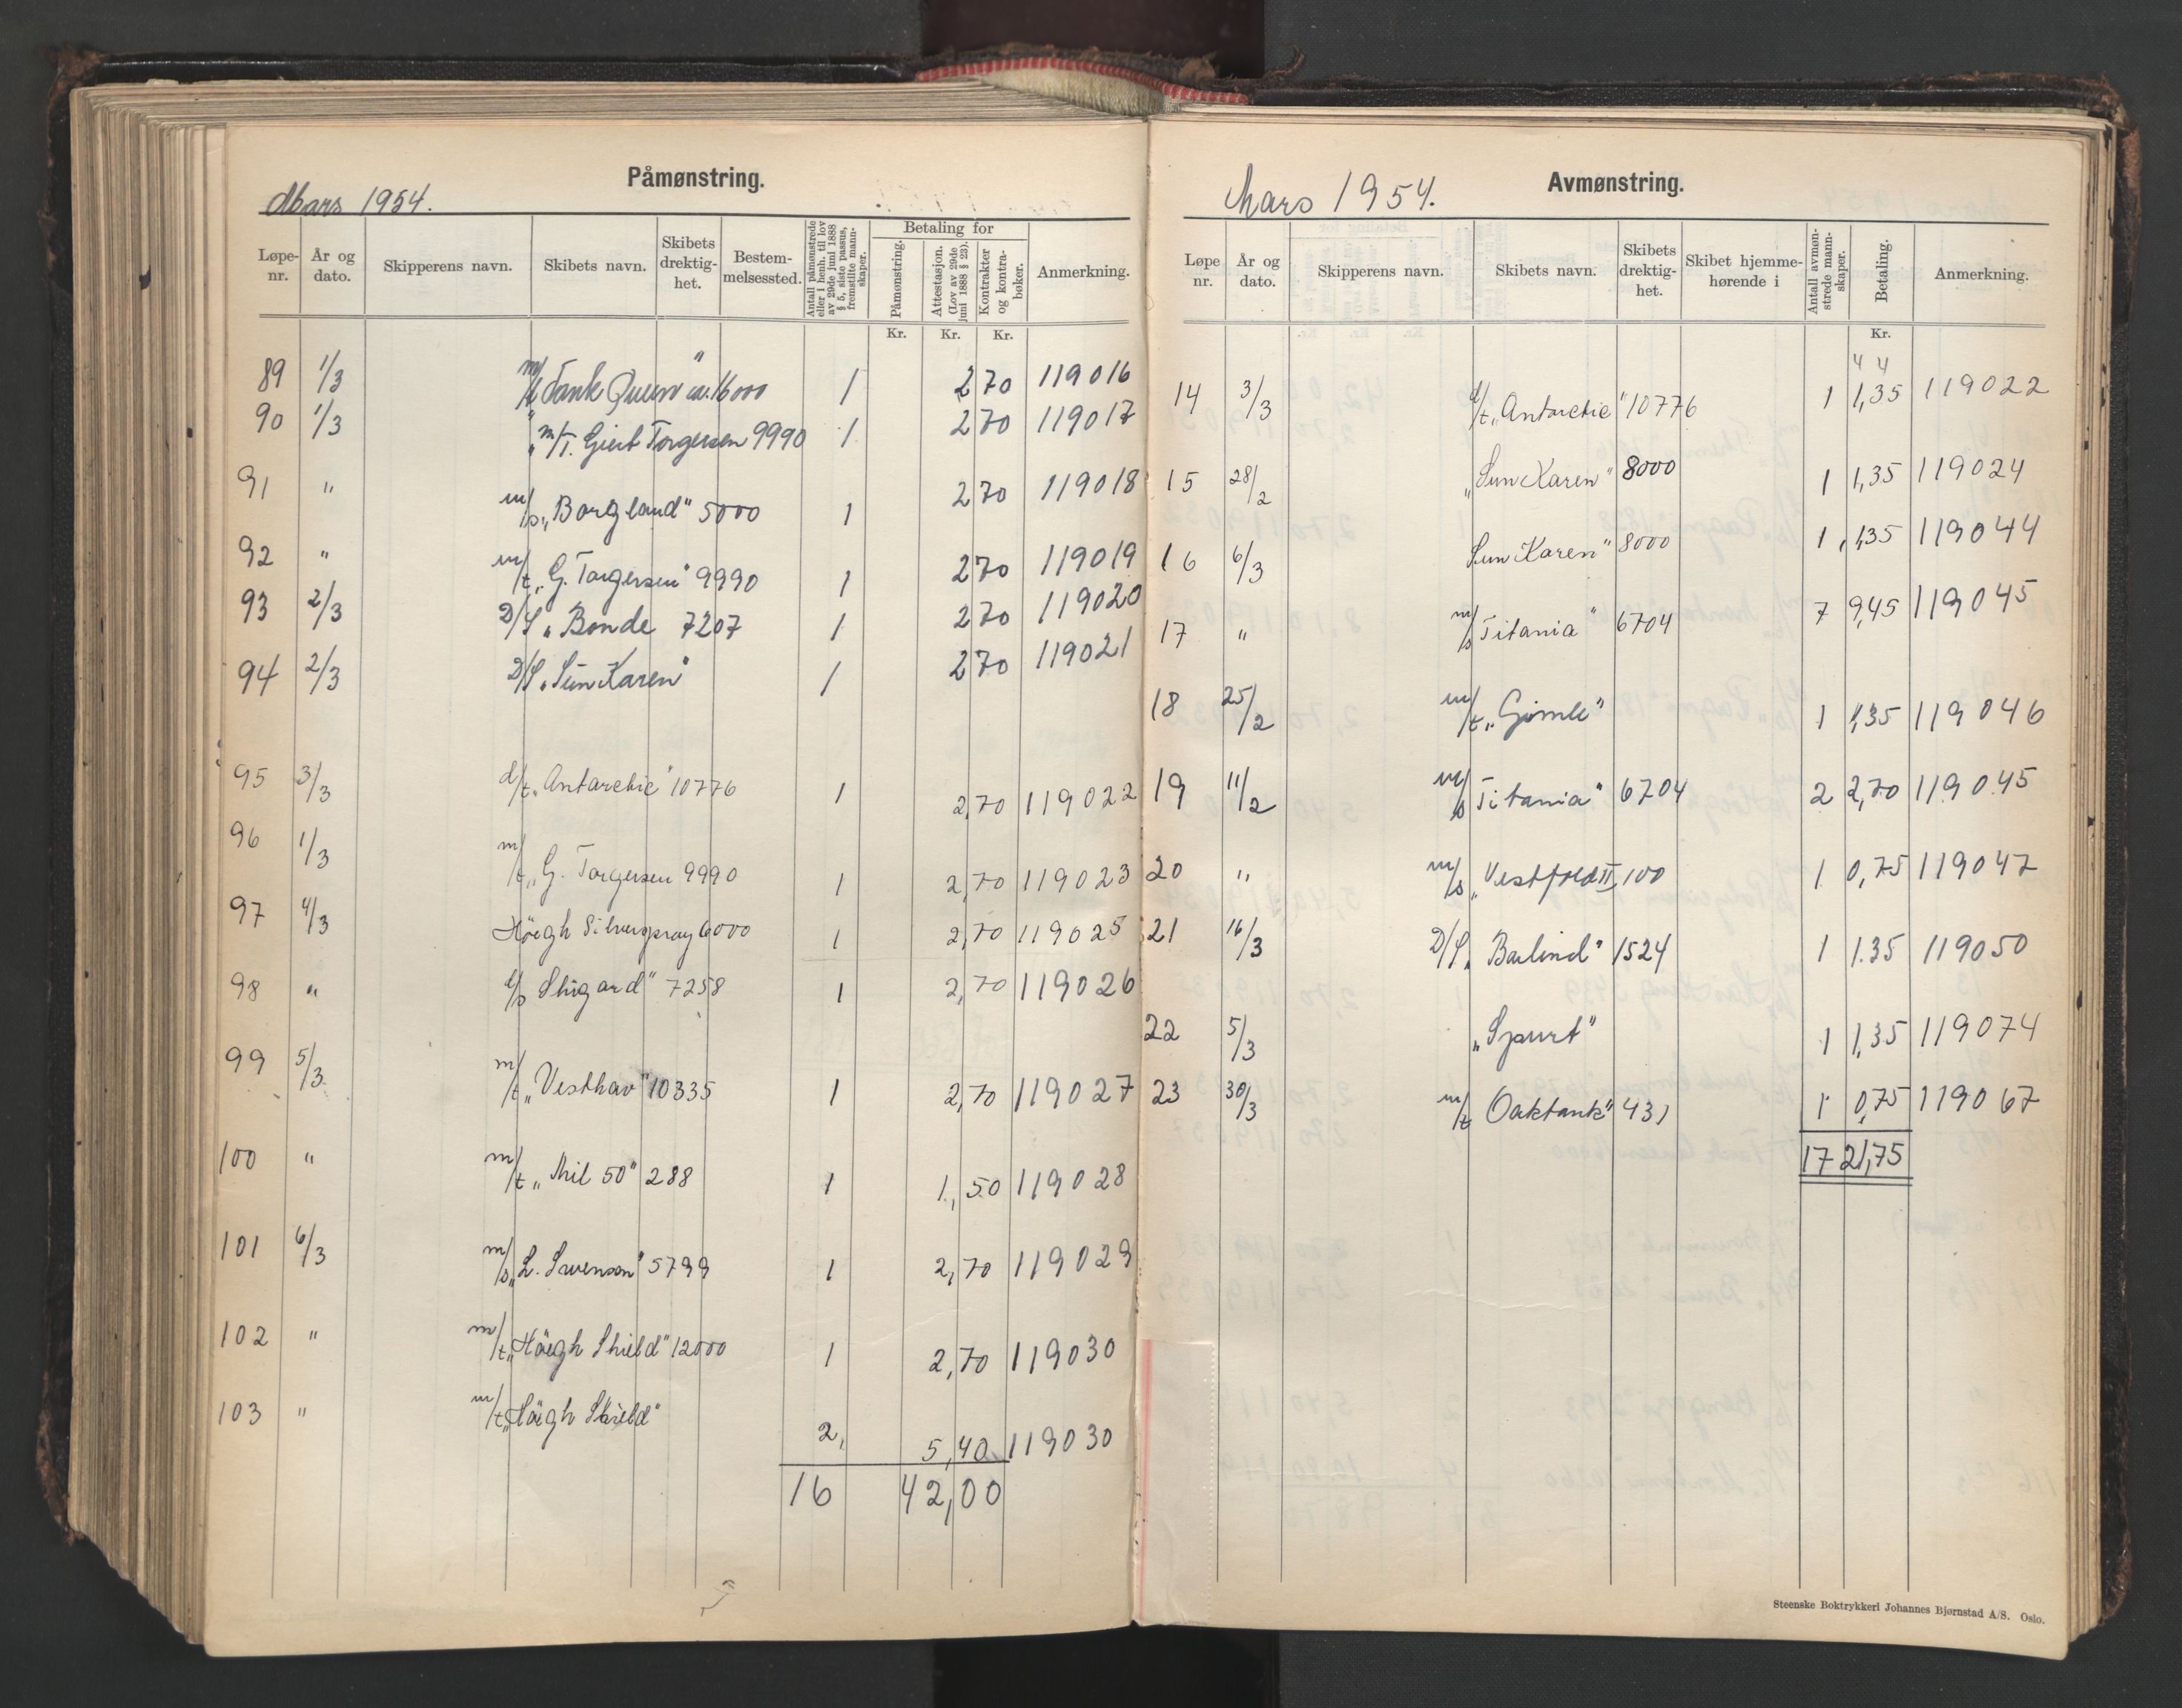 Påmønstring.
Mars 1954.
Løpe-nr. År og dato. Skipperens navn. Skibets navn. Skibets drektig-het. Bestem-melsessted. Antall påmønstrede eller i henh. til lov av 29de juni 1888 § 5, siste passus, fremstilte mann-skaper. Betaling for Påmønstring. Attestasjon. (Lov av 29de juni 1888 § 23). Kontrakter og kontra-bøker. Anmerkning.
Kr. Kr. Kr.
89 1/3 m/t Tank Queen" ca. 16000 1 2 70 119016
90 1/3 " m/T. Giert Torgersen 9990 1 2 70 119017
91 " m/s „Borgland" 5000 1 2 70 119018
92 " m/t „G. Torgersen" 9990 1 2 70 119019
93 2/3 D/S „Bonde 7207 1 2 70 119020
94 2/3 D/S „Sun Karen" 1 2 70 119021
95 3/3 d/t „Antarctic" 10776 1 2,70 119022
96 1/3 m/t „G. Torgersen 9990 1 2,70 119023
97 4/3 Höegh Silverspray 6000 1 2,70 119025
98 " 7258 1 2,70 119026
99 5/3 m/t „Vesthav" 10335 1 2,70 119027
100 " m/t „Mil 50" 288 1 1,50 119028
101 6/3 m/s „L. Swenson" 5799 1 2,70 119029
102 " m/t „Höegh Shield" 12000 1 2,70 119030
103 " m/t „Höegh Shield" 2, 5,40 119030
16 42,00
Avmønstring.
Mars 1954.
Løpe nr. År og dato. Skipperens navn. Skibets navn. Skibets drektig-het. Skibet hjemme-hørende i Antall avmøn-strede mann-skaper. Betaling. Anmerkning.
Kr.
14 3/3 d/t „Antarctic" 10776 1 1,35 119022
15 28/2 „Sun Karen" 8000 1 1,35 119024
16 6/3 Sun Karen" 8000 1 1,35 119044
17 " m/s Titania" 6704 7 9,45 119045
18 25/2 m/t „Gimle" 1 1,35 119046
19 11/2 m/s Titania" 6704 2 2,70 119045
20 " m/s „Vestfold II 100 1 0,75 119047
21 16/3 D/S „Barlind" 1524 1 1.35 119050
22 5/3 „Spurt" 1 1,35 119074
23 30/3 m/t Oaktank" 431 1 0,75 119067
17 21,75
Steenske Boktrykkeri Johannes Bjørnstad A/S. Oslo.